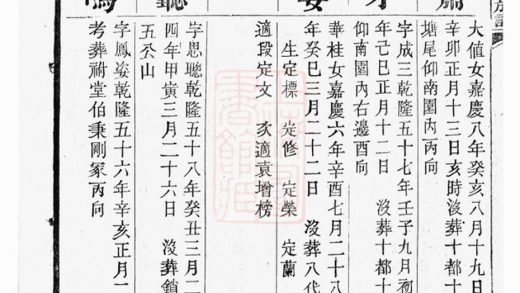 大値女嘉慶八年癸亥八月十九日
辛卯正月十三日亥時沒葬十都十
塘尾仰南園內丙向
字成三乾隆五十七年壬子九月初
年己巳正月十二日 沒葬十都十
仰南園內右邊酉向
華桂女嘉慶六年辛酉七月二十八
年癸巳三月二十二日 沒葬八代
生定標 定修 定榮 定蘭
適段定文 次適袁增榜
字思聰乾隆五十八年癸丑三月二
四年甲寅三月二十六日 沒葬鎖
五丞山
字鳳姿乾隆五十六年辛亥正月一
考葬祔堂伯秉剛冢丙向